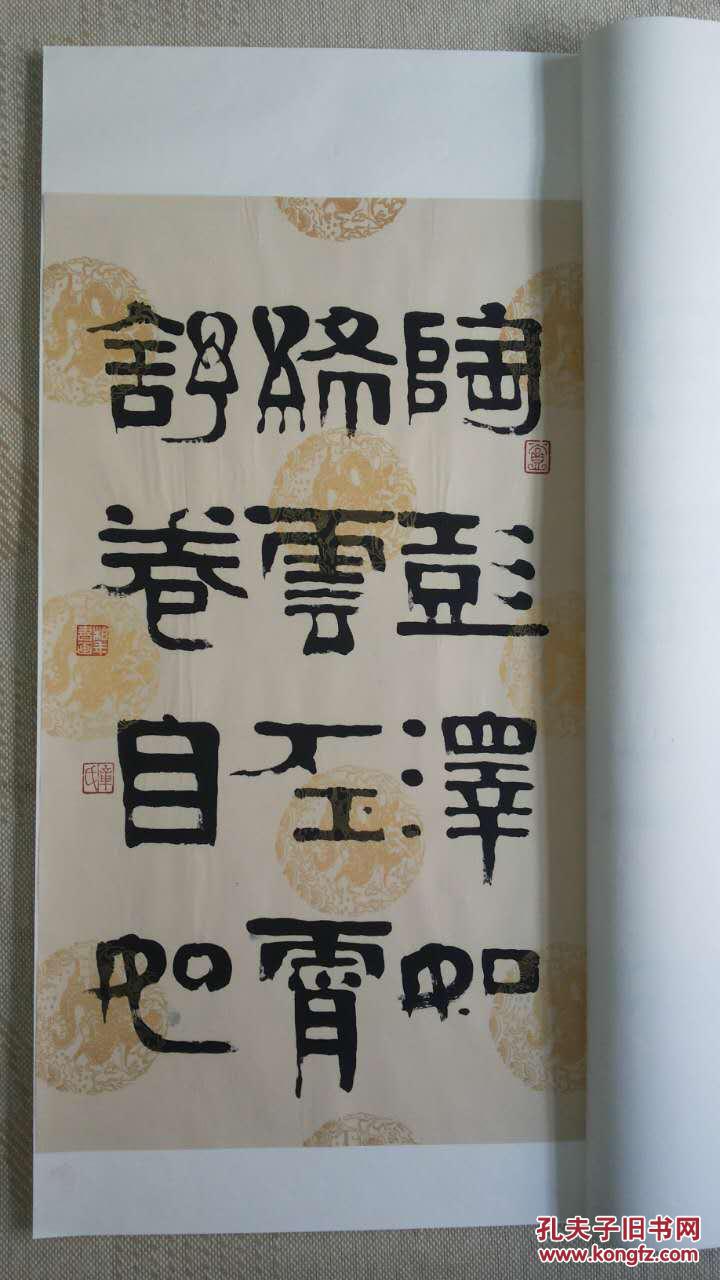 陶彭澤如
絳雲在霄
舒卷自如
章氏
孔夫子旧书网
www.kongfz.com